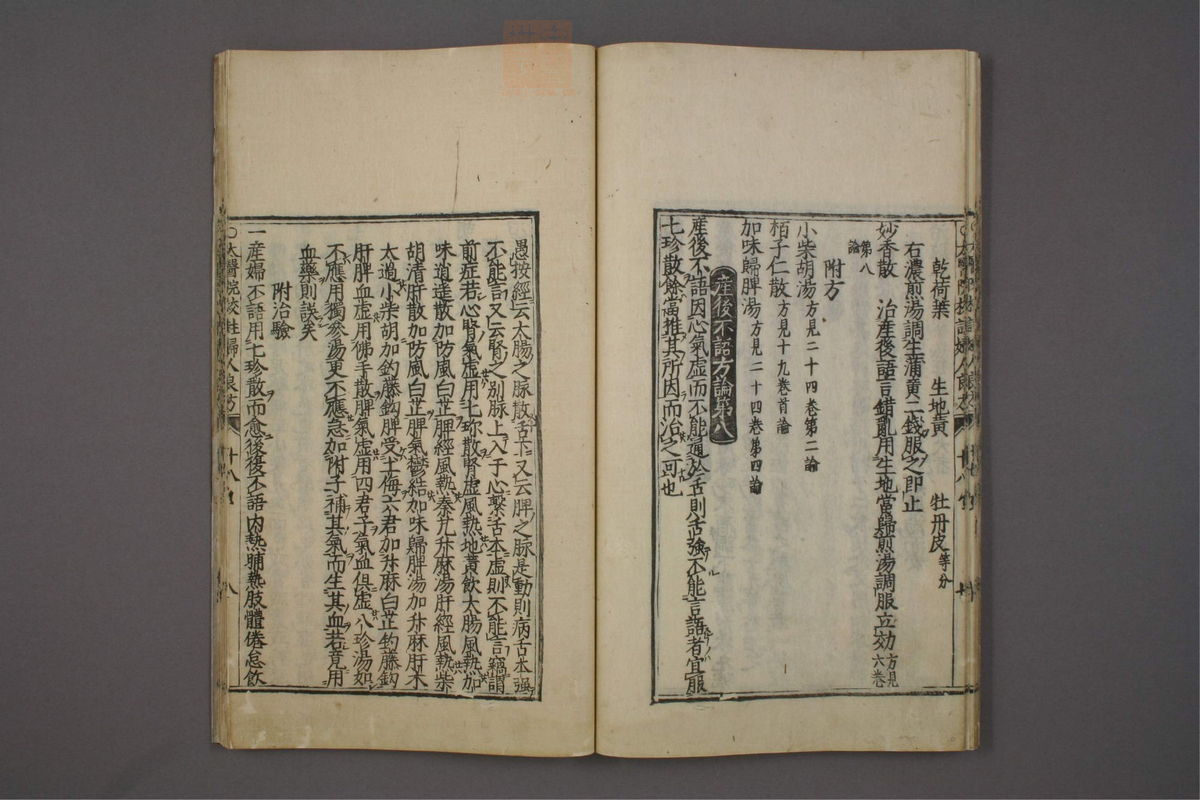 乾荷葉　生地黄　牡丹皮等分
右濃煎湯調生蒲黄二錢服之即止
妙香散　治産後語言錯亂用生地當歸煎湯調服立効方見六卷
第八論
附方
小柴胡湯方見二十四卷第二論
栢子仁散方見十九卷首論
加味歸脾湯方見二十四卷第四論
産後不語方論第八
産後不語因心氣虛而不能通於舌則舌強不能言語者宜服
七珍散餘當推其所因而治之可也
愚按經云大腸之脉散舌下又云脾之脉是動則病舌本強
不能言又云腎之別脉上入于心繫舌本虛則不能言竊謂
前症若心腎氣虛用七珎散腎虛風熱地黄飲大腸風熱加
味逍遥散加防風白芷脾經風熱秦艽升麻湯肝經風熱柴
胡清肝散加防風白芷脾氣鬱結加味歸脾湯加升麻肝木
太過小柴胡加釣藤鈎脾受土侮六君加升麻白芷釣藤鈎
肝脾血虛用佛手散脾氣虛用四君子氣血俱虛八珍湯如
不應用獨參湯更不應急加附子補其氣而生其血若竟用
血藥則誤矣
附治驗
一産婦不語用七珍散而愈後復不語内熱晡熱肢體倦怠飲
○太醫院校註婦人良方　十八卷　八